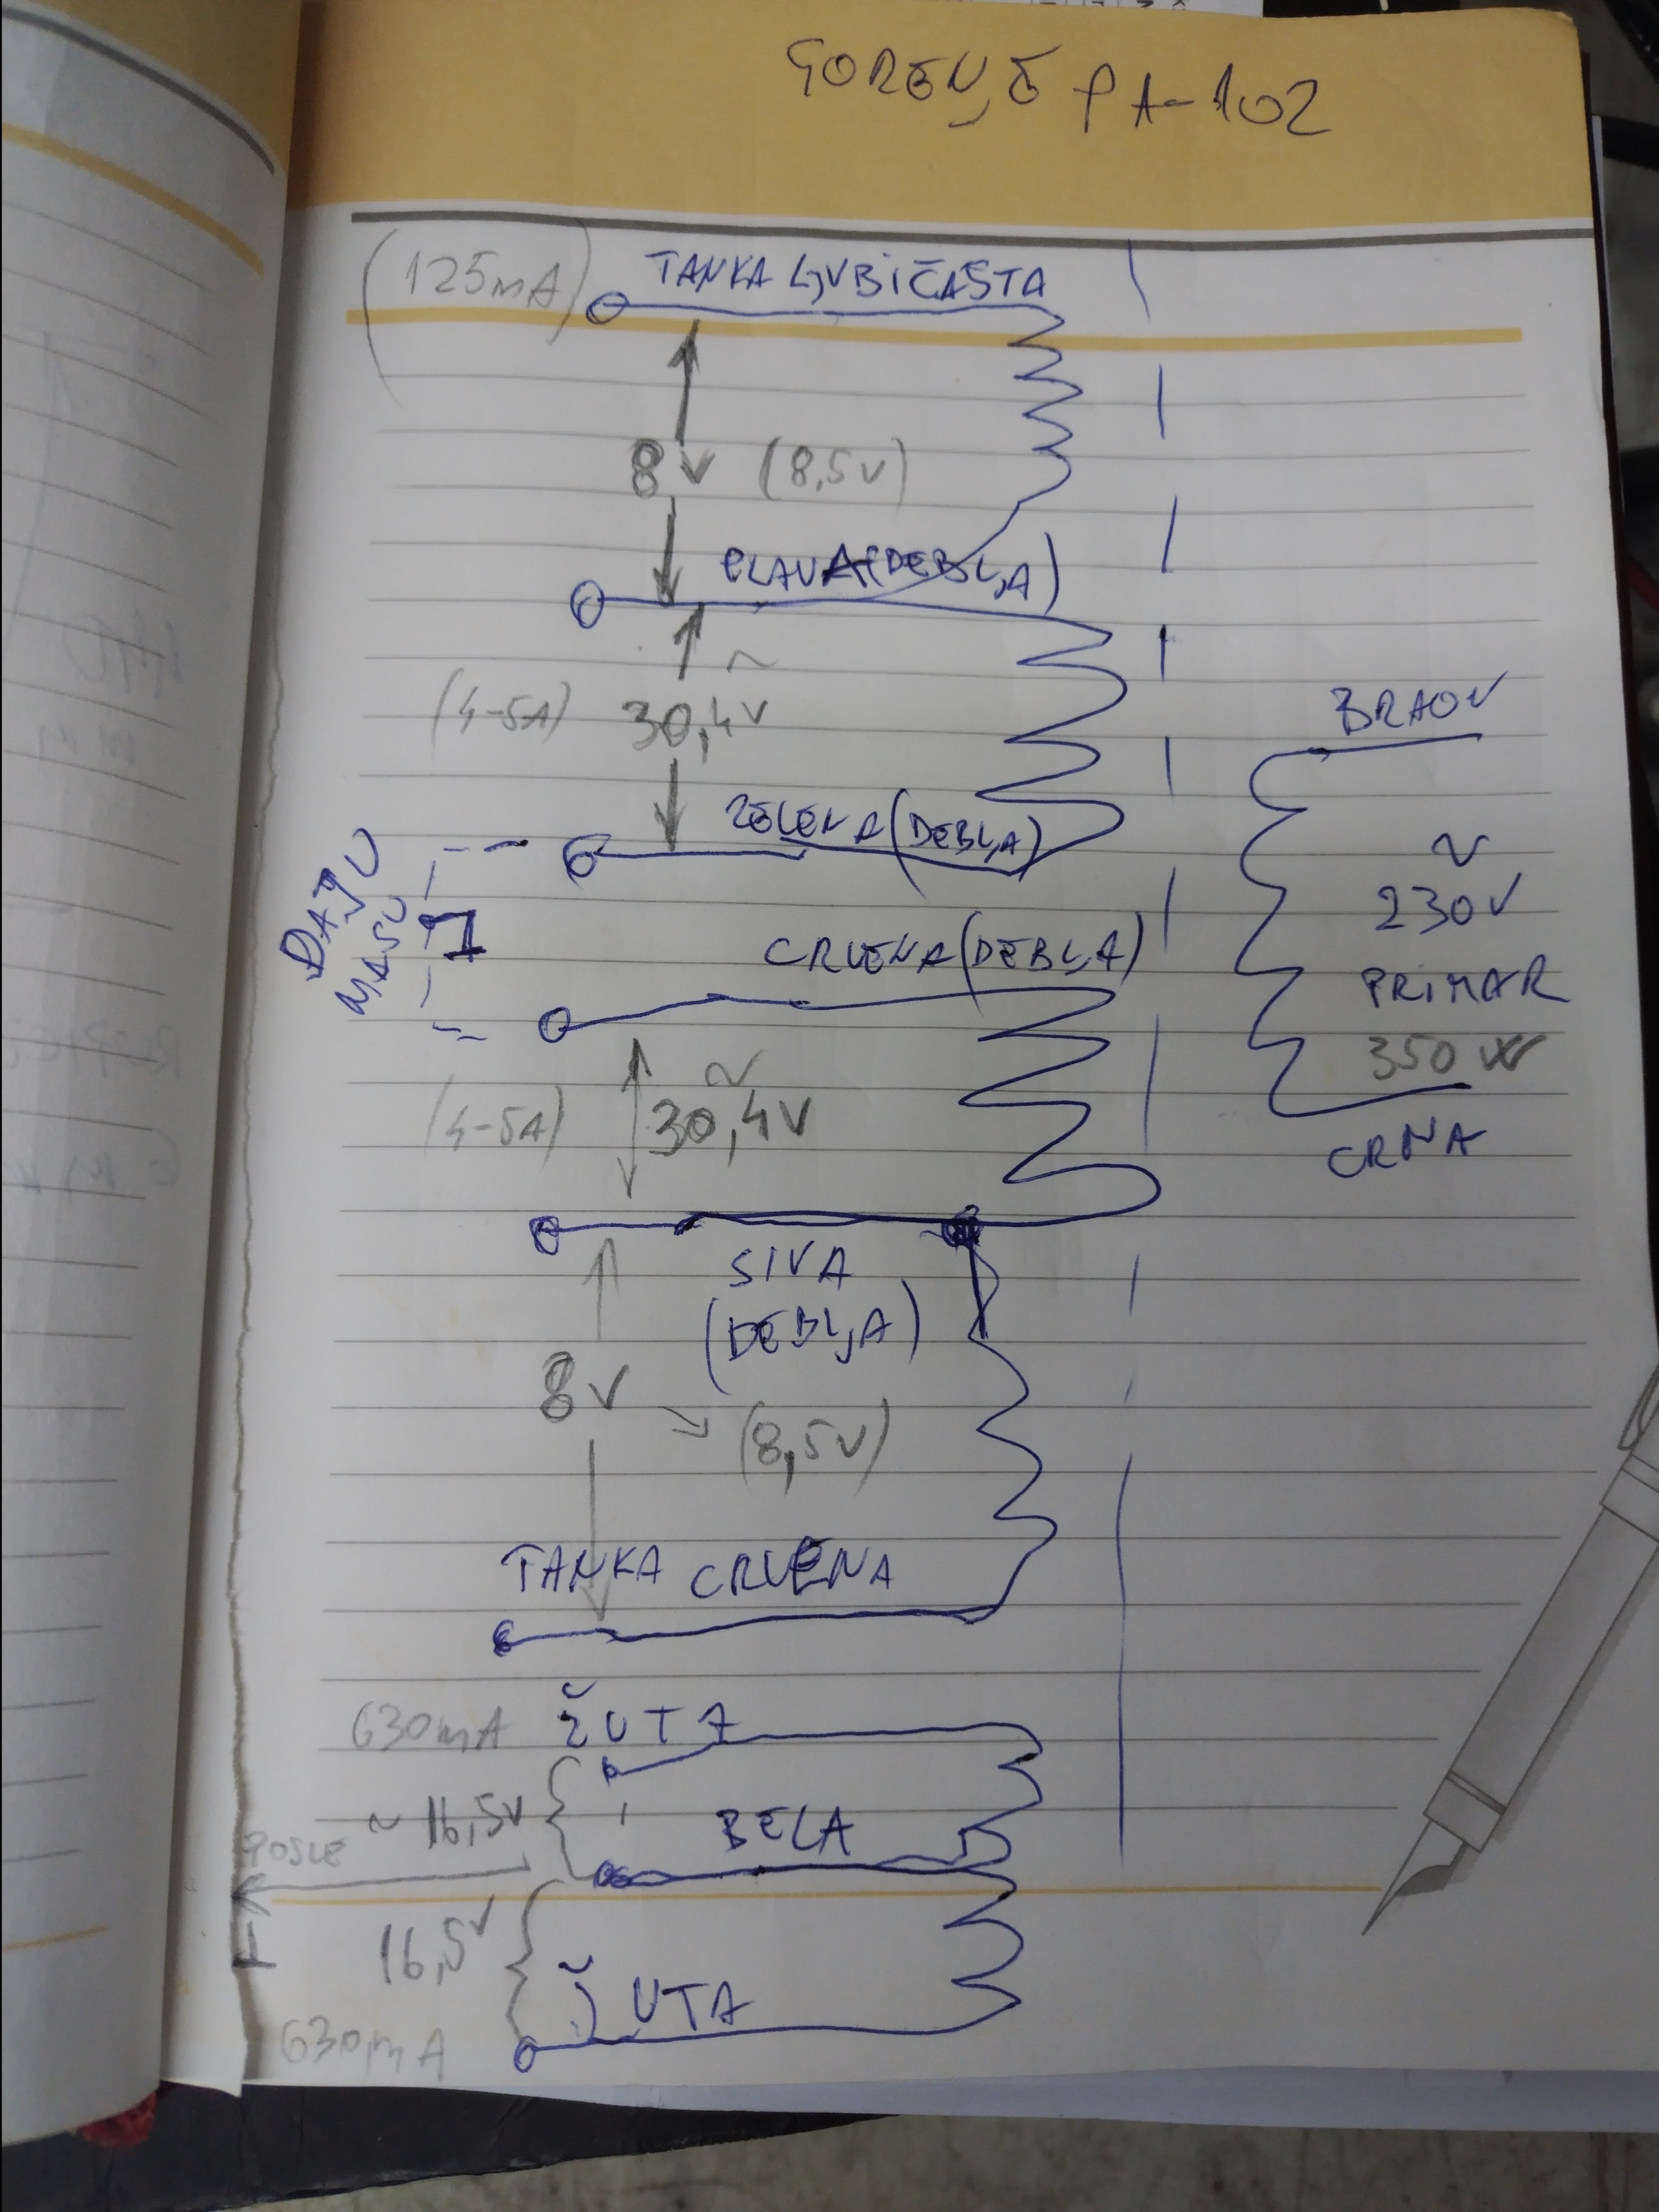 GORENJE PA-102
(125mA) TANKA LJUBIČASTA
8V (8,5V)
PLAVA (DEBLJA)
~
(4-5A) 30,4V
BRAON
ZELENA (DEBLJA)
~
230V
PRIMAR
350W
CRNA
DAJU
MASU
1
CRVENA (DEBLJA)
~
(4-5A) 30,4V
SIVA
(DEBLJA)
8V
(8,5V)
TANKA CRVENA
630mA ŽUTA
~ 16,5V
BELA
POSLE
16,5V
ŽUTA
630mA